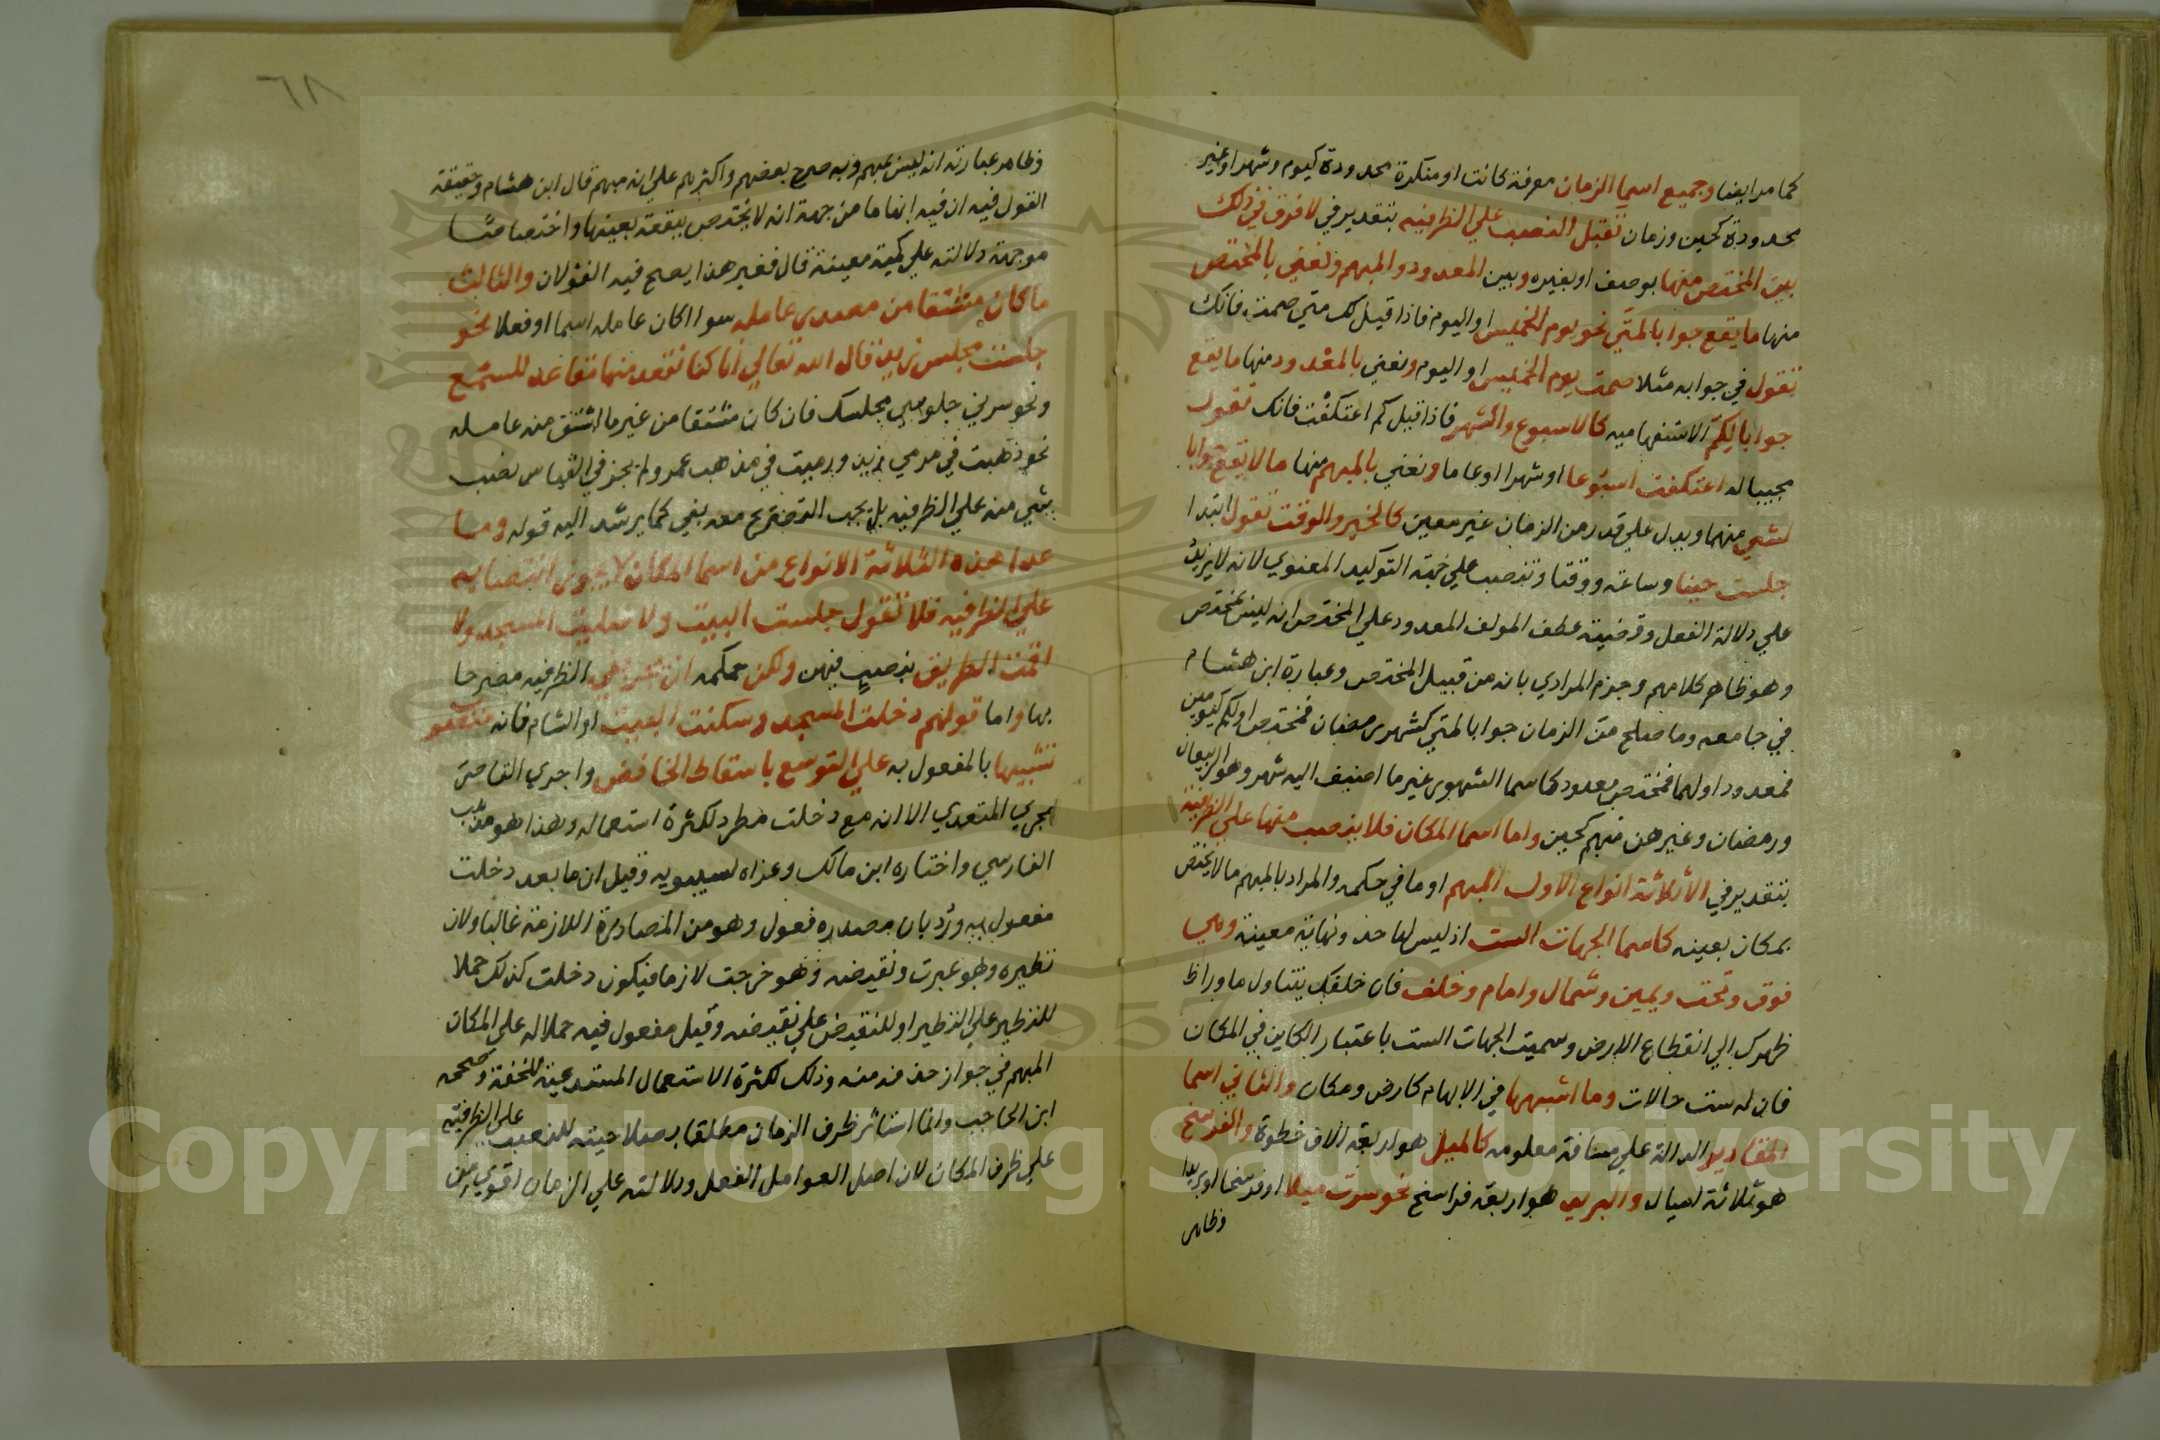 كما مر ايضا وجميع اسما الزمان معرفة كانت او منكرة محدودة كيوم وشهر او غير
محدودة كحين وزمان تقبل النصب علي الظرفيه بتقدير في لا فرق في ذلك
بين المختص منها بوصف او بغيره وبين المعدود والمبهم ونعني بالمختص
منها ما يقع جوابا لمتي نحو يوم الخميس او اليوم فاذا قيل لك متي صمت فانك
تقول في جوابه مثلا صمت يوم الخميس او اليوم ونعني بالمعدود منها ما يقع
جوابا لكم الاستفهاميه كالاسبوع والشهر فاذا قيل كم اعتكفت فانك تقول
مجيبا له اعتكفت اسبوعا او شهرا او عاما ونعني بالمبهم منها ما لا يقع جوابا
لشي منهما ويدل علي قدر من الزمان غير معين كالحين والوقت تقول ابتدا
جلست حينا وساعة ووقتا وتنصب علي جهة التوكيد المعنوي لانه لا يزيد
علي دلالة الفعل وقضية عطف المولف المعدود علي المختص انه ليس بمختص
وهو ظاهر كلامهم وجزم المرادي بانه من قبيل المختص وعبارة ابن هشام
في جامعه وما صلح من الزمان جوابا لمتي كشهر رمضان فمختص او لكم كيومين
فمعدود او لهما فمختص معدود كاسما الشهور غير ما اضيف اليه شهر وهو الربيعان
ورمضان وغيرهن مبهم كحين واما اسما المكان فلا ينصب منها علي الظرفية
بتقدير في الا ثلاثة انواع الاول المبهم او ما في حكمه والمراد بالمبهم ما لا يختص
بمكان بعينه كاسما الجهات الست اذ ليس لها حد ونهاية معينة وهي
فوق وتحت ويمين وشمال وامام وخلف فان خلفك يتناول ما ورا
ظهرك الي انقطاع الارض وسميت الجهات الست باعتبار الكاين في المكان
فان له ست حالات وما اشبهها في الابهام كارض ومكان والثاني اسما
المقادير الدالة علي مسافة معلومه كالميل هو اربعة الاف خطوة والفرسخ
هو ثلاثة اميال والبريد هو اربعة فراسخ نحو سرت ميلا او فرسخا او بريدا
وظاهر
٦٨
وظاهر عبارته انه ليس بمبهم وبه صرح بعضهم واكثرهم علي انه مبهم قال ابن هشام وحقيقة
القول فيه ان فيه ابهاما من جهة انه لا يختص ببقعة بعينها واختصاصا
من جهة دلالته علي كمية معينة قال فغير هذا يصح فيه القولان والثالث
ما كان مشتقا من مصدر عامله سوا اكان عامله اسما او فعلا نحو
جلست مجلس زيد قال الله تعالي انا كنا نقعد منها مقاعد للسمع
ونحو سرني جلوسي مجلسك فان كان مشتقا من غير ما اشتق منه عامله
نحو ذهبت في مرمي زيد ورميت في مذهب عمرو لم يجز في القياس نصب
شي منه علي الظرفيه بل يجب التصريح معه بفي كما يرشد اليه قوله وما
عدا هذه الثلاثة الانواع من اسما المكان لا يجوز انتصابه
علي الظرفيه فلا تقول جلست البيت ولا صليت المسجد ولا
اقمت الطريق بنصب فيهن ولكن حكمه ان الظرفيه مصرحا
بها واما قولهم دخلت المسجد وسكنت البيت او الشام فانه منصوب
تشبيها بالمفعول به علي التوسع باسقاط الخافض واجري القاصر
مجري المتعدي الا انه مع دخلت مطرد لكثرة استعماله وهذا هو مذهب
الفارسي واختاره ابن مالك وعزاه لسيبويه وقيل ان ما بعد دخلت
مفعول به ورد بان مصدره فعول وهو من المصادر اللازمة غالبا ولان
نظيره وهو عبرت ونقيضه وهو خرجت لازما فيكون دخلت كذلك حملا
للنظير علي النظير او للنقيض علي نقيضه وقيل مفعول فيه حملا له علي المكان
المبهم في جواز حذف منه وذلك لكثرة الاستعمال المستدعية للخفة وصححه
ابن الحاجب وانما استاثر ظرف الزمان مطلقا بصلاحيته للنصب علي الظرفية
علي ظرف المكان لان اصل العوامل الفعل ودلالته علي الزمان اقوي من
Copyright © King Saud University
1957